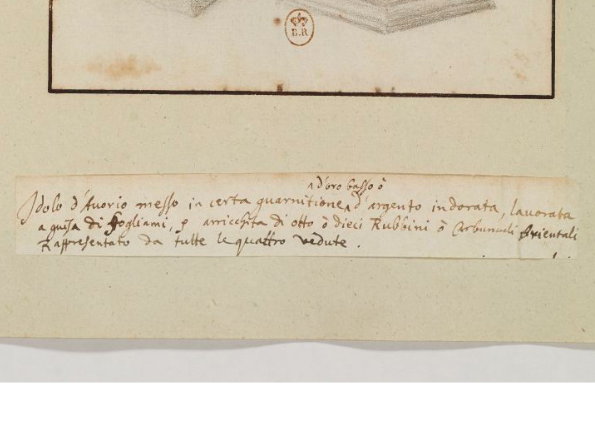 E.R
^ d'oro basso ò
Idolo d'Auorio messo in certa guarnitione ^ d'argento indorata, lauorata
a guisa di fogliami, e arricchita di otto ò dieci Rubbini ò Carbunculi Orientali
Rappresentato da tutte le quattro vedute.